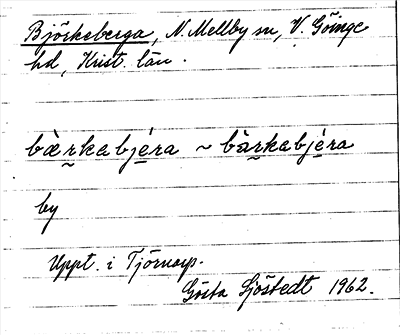 Björkeberga, N. Mellby sn, V. Göinge
hd, Krist. län.
bæ̀r̰kabjé̱ra ~ bàr̰kabjé̱ra
by
Uppt. i Tjörnarp.
Gösta Sjöstedt 1962.